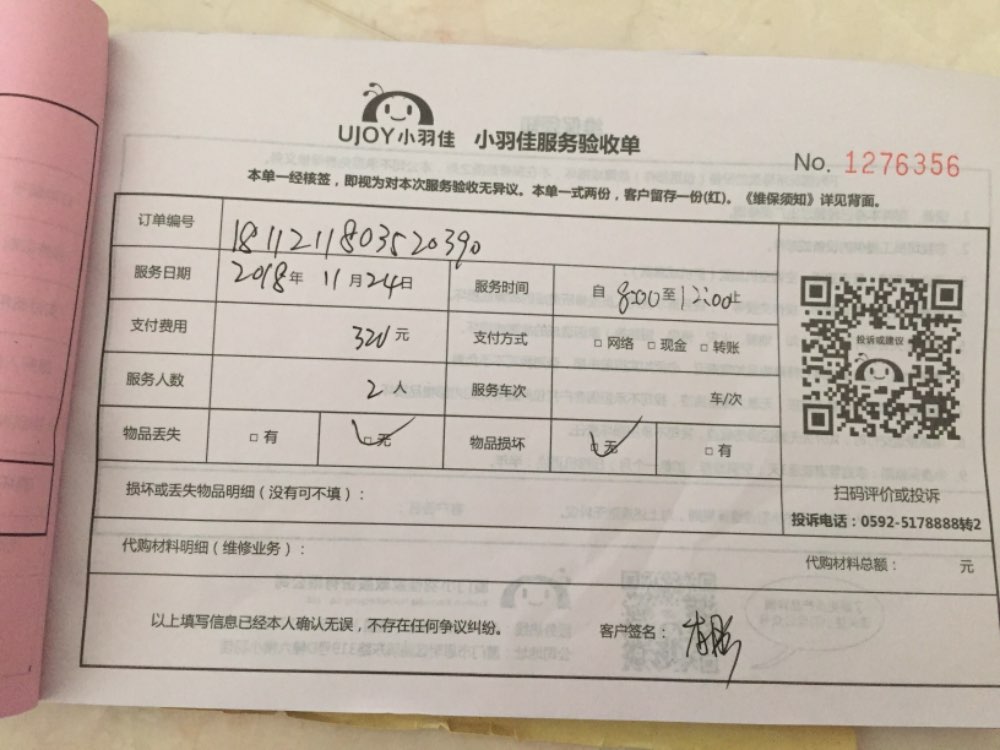 UJOY小羽佳 小羽佳服务验收单
No. 1276356
本单一经核签，即视为对本次服务验收无异议。本单一式两份，客户留存一份(红)。《维保须知》详见背面。
订单编号 1811211803520390
服务日期 2018年 11月24日 服务时间 自 8:00至12:00止
支付费用 320元 支付方式 □网络 □现金 □转账
投诉或建议
服务人数 2人 服务车次 车/次
物品丢失 □有 □无 物品损坏 □无 □有
损坏或丢失物品明细（没有可不填）：
扫码评价或投诉
投诉电话：0592-5178888转2
代购材料明细（维修业务）：
代购材料总额： 元
以上填写信息已经本人确认无误，不存在任何争议纠纷。 客户签名：